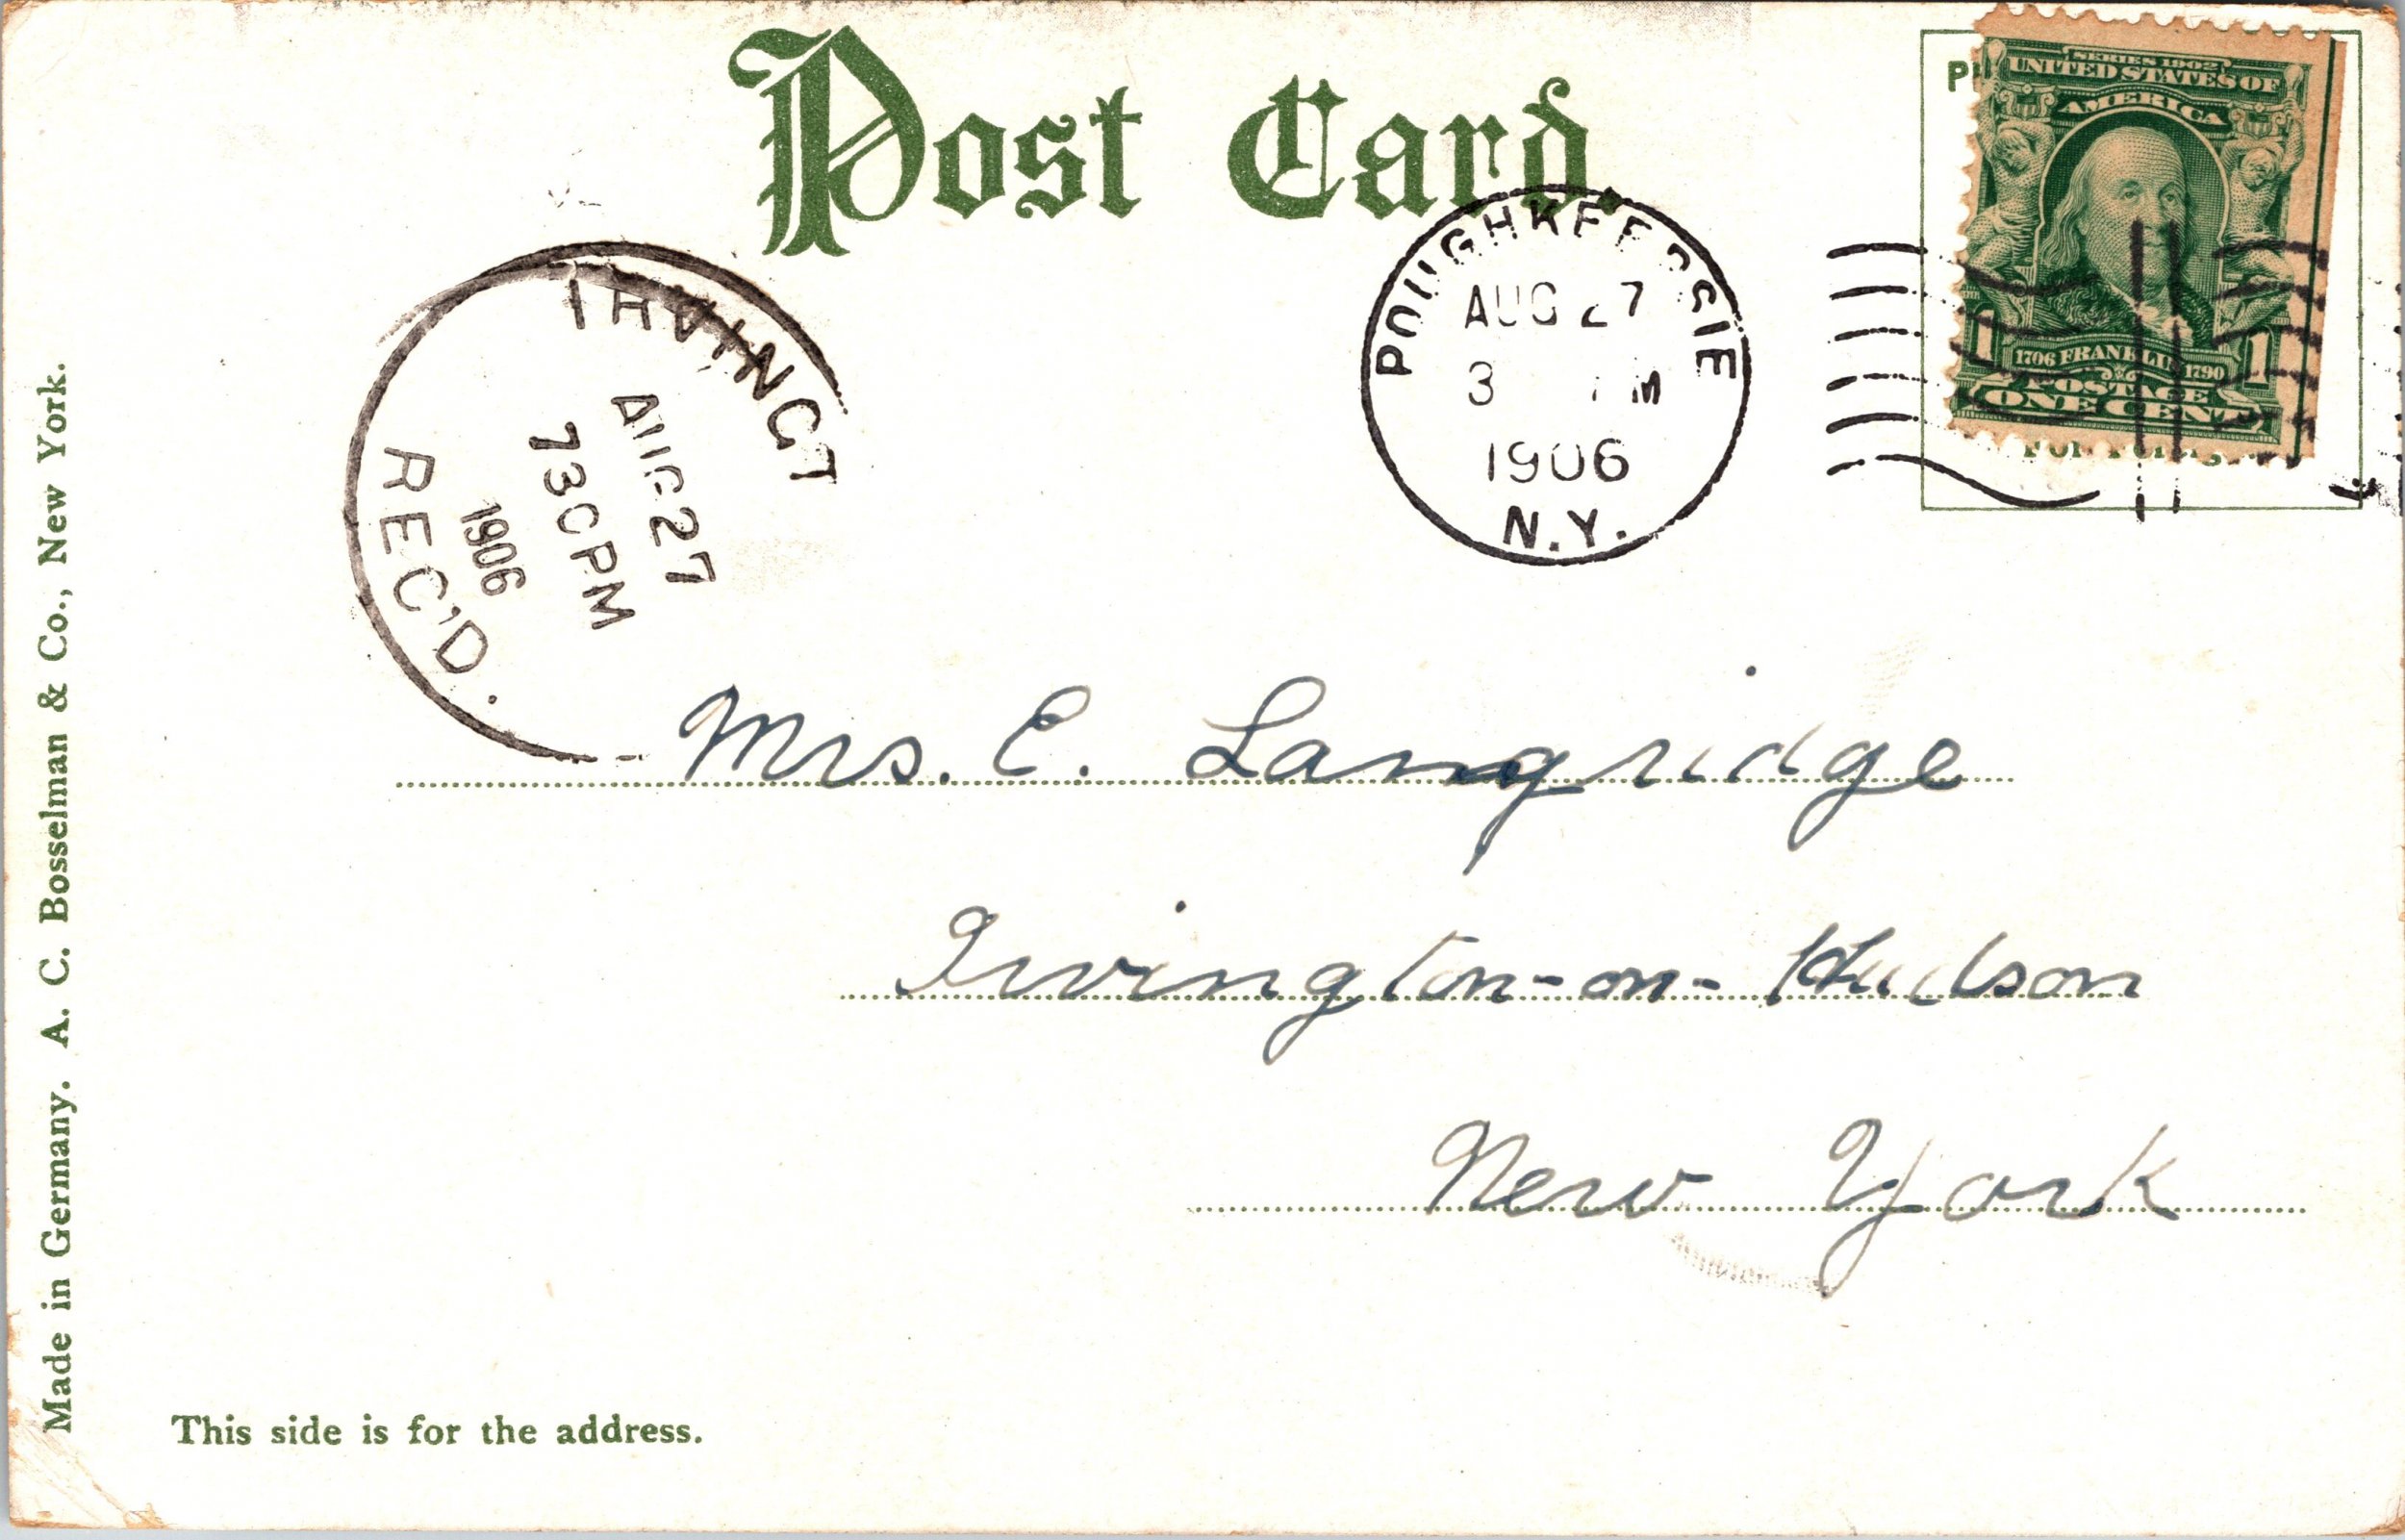 Post Card.
SERIES 1902
UNITED STATES OF
AMERICA
1 1706 FRANKLIN 1790 1
POSTAGE
ONE CENT
POUGHKEEPSIE
AUG 27
3 M
1906
N.Y.
IRVINGT
AUG 27
730PM
1906
REC'D.
Mrs. E. Langridge
Irvington-on-Hudson
New York
This side is for the address.
Made in Germany. A. C. Bosselman & Co., New York.